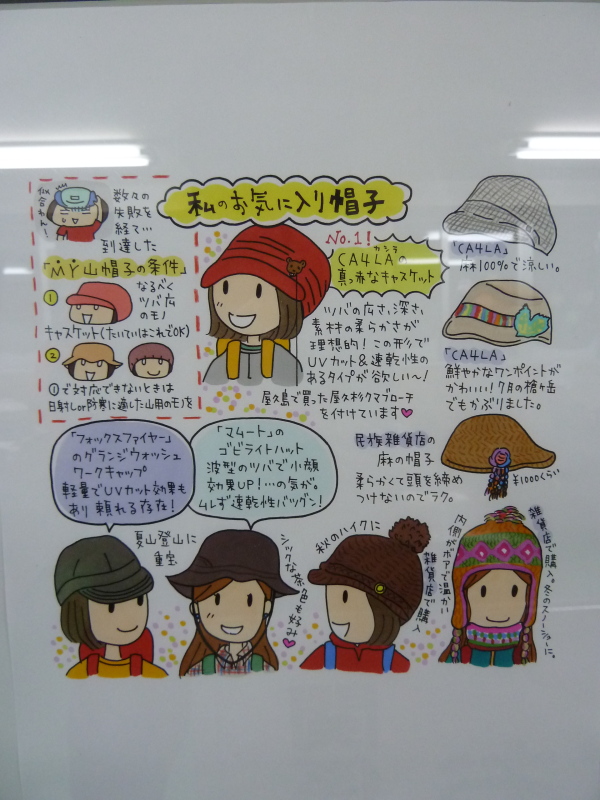 私のお気に入り帽子
似合わん…
数々の
失敗を
経て…
到達した
「MY山帽子の条件」
①
なるべく
ツバ広
のモノ
キャスケット(たいていはこれでOK)
②
①で対応できないときは
日射しor防寒に適した山用のモノを
No.1!
カシラ
CA4LAの
真っ赤なキャスケット
ツバの広さ、深さ、
素材の柔らかさが
理想的!この形で
UVカット&速乾性の
あるタイプが欲しい〜!
屋久島で買った屋久杉クマブローチ
を付けています♥
「CA4LA」
麻100%で涼しい。
「CA4LA」
鮮やかなワンポイントが
かわいい!7月の槍ヶ岳
でもかぶりました。
民族雑貨店の
麻の帽子
柔らかくて頭を締め
つけないのでラク。
¥1000くらい
「フォックスファイヤー」
のグランジウォッシュ
ワークキャップ
軽量でUVカット効果も
あり頼れる存在!
「マムート」の
ゴビライトハット
波型のツバで小顔
効果UP!…の気が。
ムレず速乾性バツグン!
夏山登山に
重宝
シックな茶色も好み♥
秋のハイクに
雑貨店で購入
雑貨店で購入。冬のスノーシューに。
内側がボアで温かい